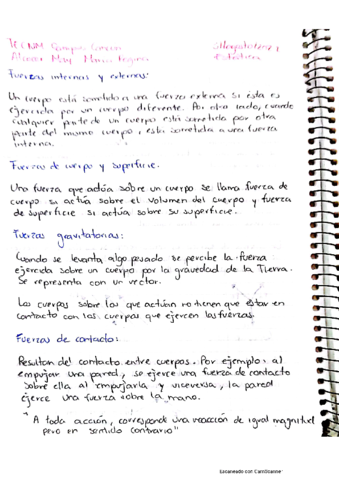 TECNM Campus Cancun
Alcocer May Mario
Fuerzas internas y externas:
Un cuerpo está sometido a una fuerza externa si ésta es
ejercida por un cuerpo diferente. Por otro lado, cuando
cualquier parte de un cuerpo está sometida por otra
parte del mismo cuerpo, está sometida a una fuerza
interna.
Fuerzas de cuerpo y superficie.
Una fuerza que actúa sobre un cuerpo se llama fuerza de
cuerpo si actúa sobre el volumen del cuerpo y fuerza
de superficie si actúa sobre su superficie.
Fuerzas gravitatorias:
Cuando se levanta algo pesado se percibe la fuerza
ejercida sobre un cuerpo por la gravedad de la Tierra.
Se representa con un vector.
Los cuerpos sobre los que actúan no tienen que estar en
contacto con los cuerpos que ejercen las fuerzas.
Fuerzas de contacto:
Resultan del contacto entre cuerpos. Por ejemplo: al
empujar una pared, se ejerce una fuerza de contacto
sobre ella al empujarla y viceversa, la pared
ejerce una fuerza sobre la mano.
"A toda acción, corresponde una reacción de igual magnitud
pero en sentido contrario"
Escaneado con CamScanner